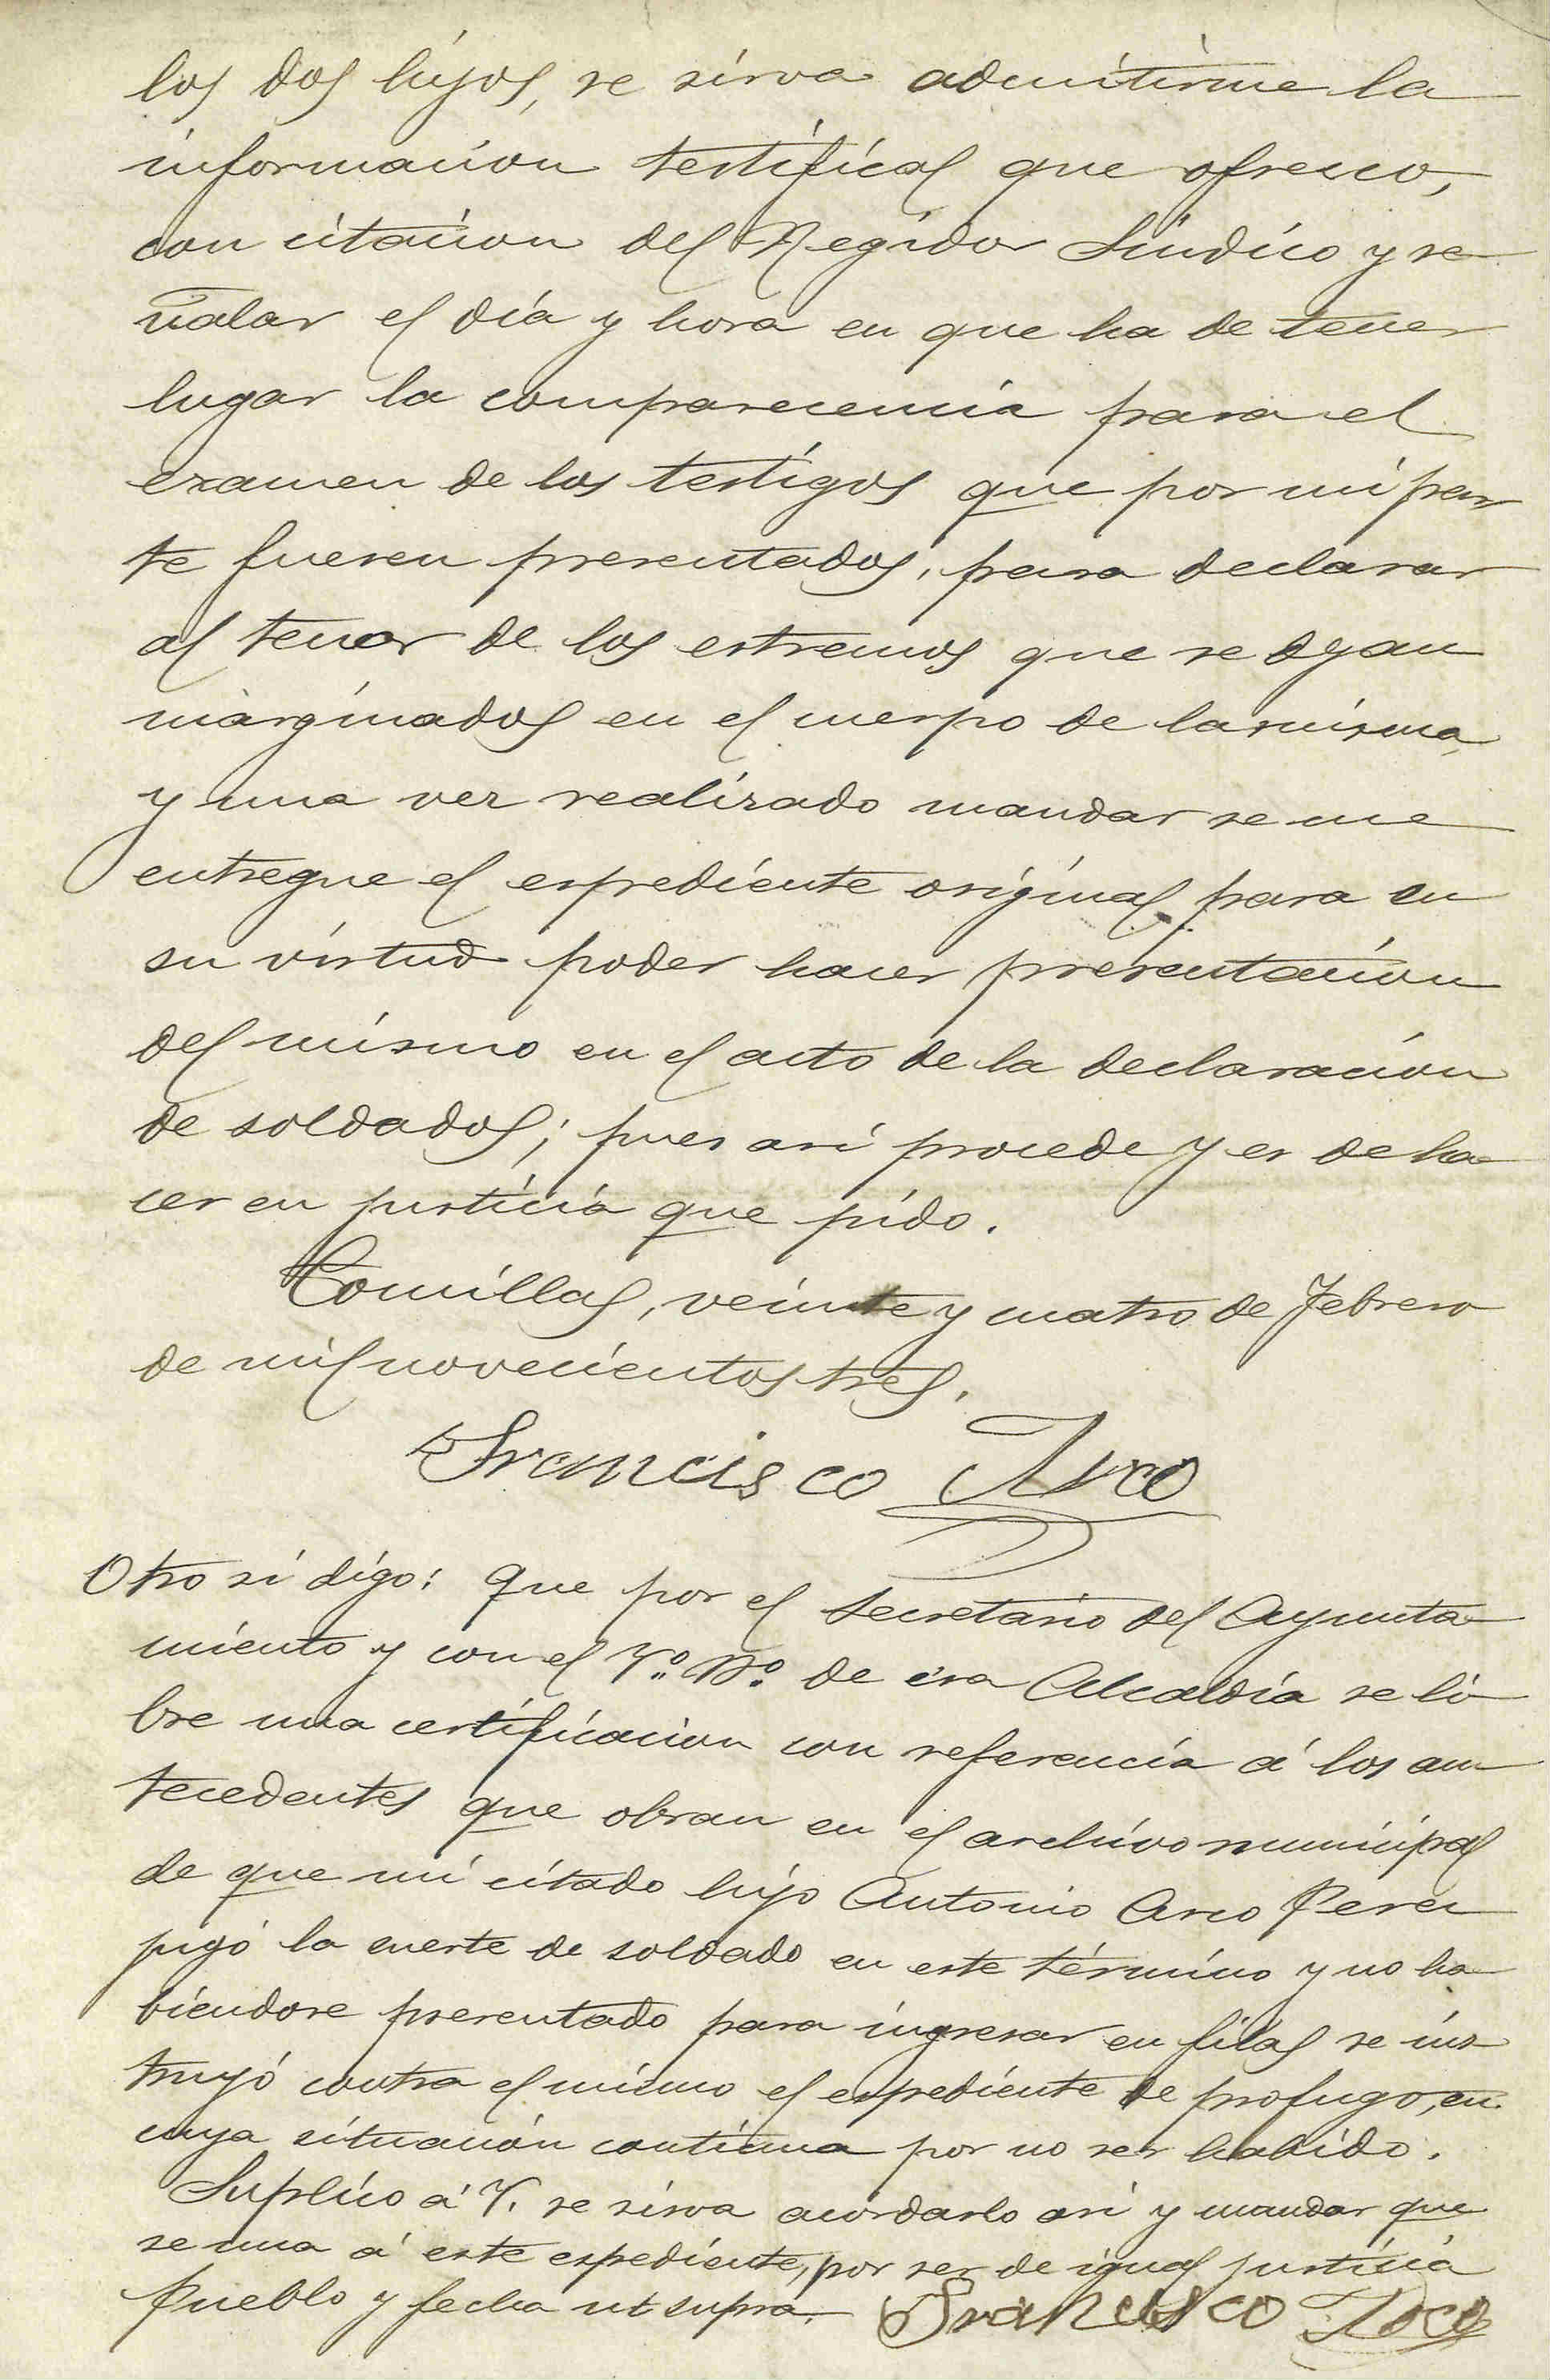 los dos hijos, se sirva admitirme la
información testifical que ofrezco,
con citación del Regidor Síndico y se
ñalar el día y hora en que ha de tener
lugar la comparecencia para el
examen de los testigos que por mi par
te fueren presentados, para declarar
al tenor de los estremos que se dejan
marginados en el cuerpo de la misma,
y una vez realizado mandar se me
entregue el espediente original para en
su virtud poder hacer presentación
del mismo en el acto de la declaración
de soldados; pues así procede y es de ha
cer en justicia que pido.
Comillas, veinte y cuatro de Febrero
de mil novecientos tres.
Francisco Arco
Otro si digo: que por el Secretario del Ayunta
miento y con el Vº. Bº. de esa Alcaldía se li
bre una certificacion con referencia á los an
tecedentes que obran en el archivo municipal
de que mi citado hijo Antonio Arco Perez
jugó la suerte de soldado en este término y no ha
biendose presentado para ingresar en filas se ins
truyó contra el mismo el espediente de profugo, en
cuya situación continua por no ser habido.
Suplico á V. se sirva acordarlo así y mandar que
se una á este espediente, por ser de igual justicia
Pueblo y fecha ut supra. Francisco Arco